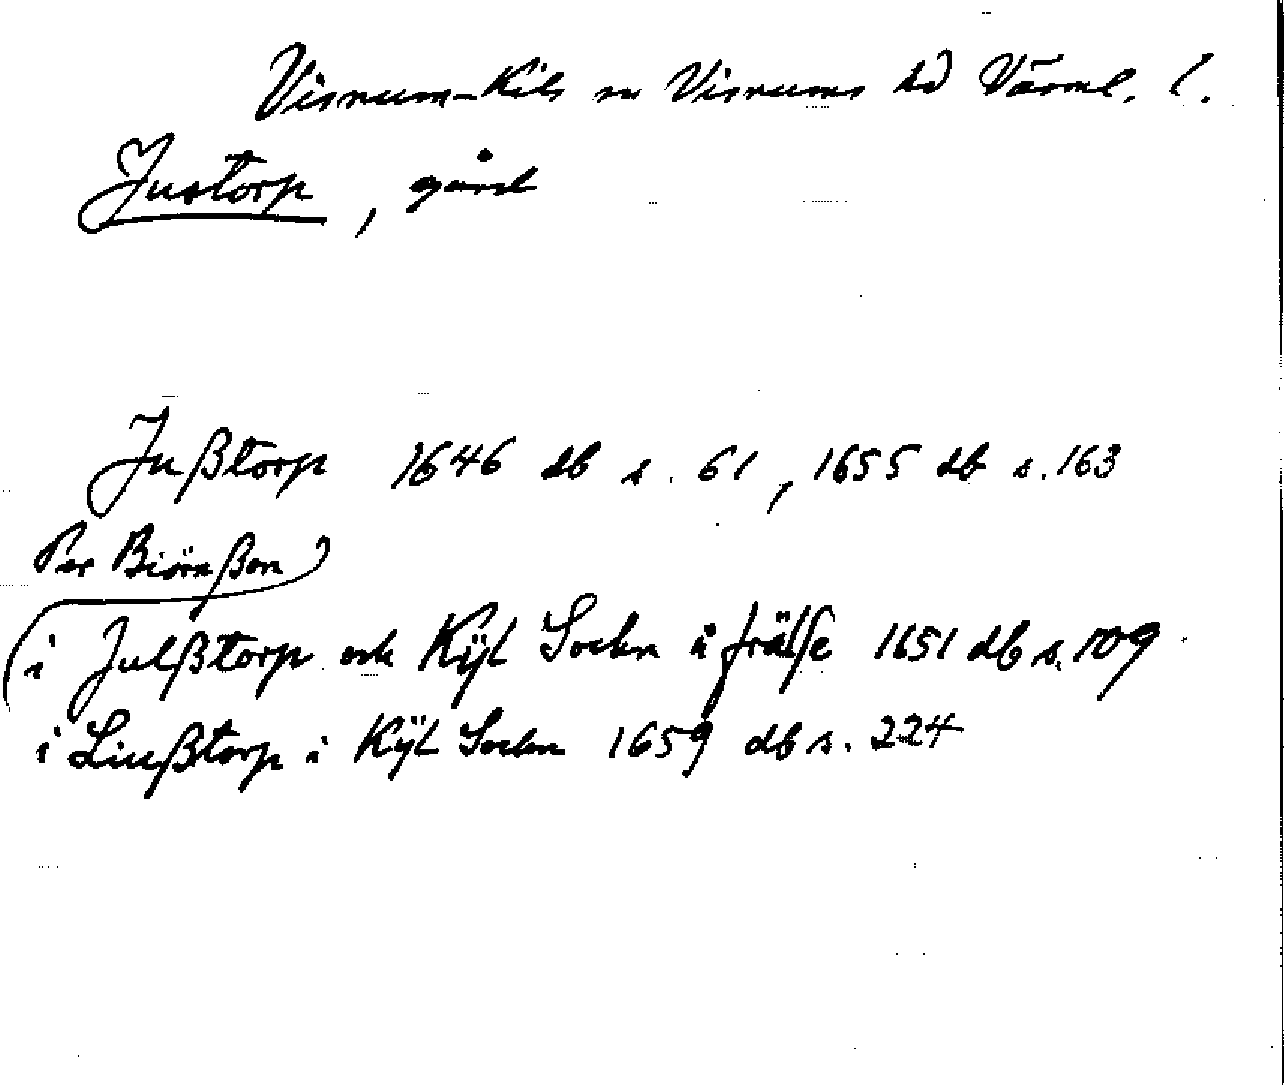 Visnum-Kils sn Visnums hd Värml. l.
Justorp, gård
Jußtorp 1646 db s. 61, 1655 db s. 163
Per Biörnßon
i Julßtorp och Kÿl Sockn i frälse 1651 db s. 109
i Liußtorp i Kÿl Sockn 1659 db s. 224